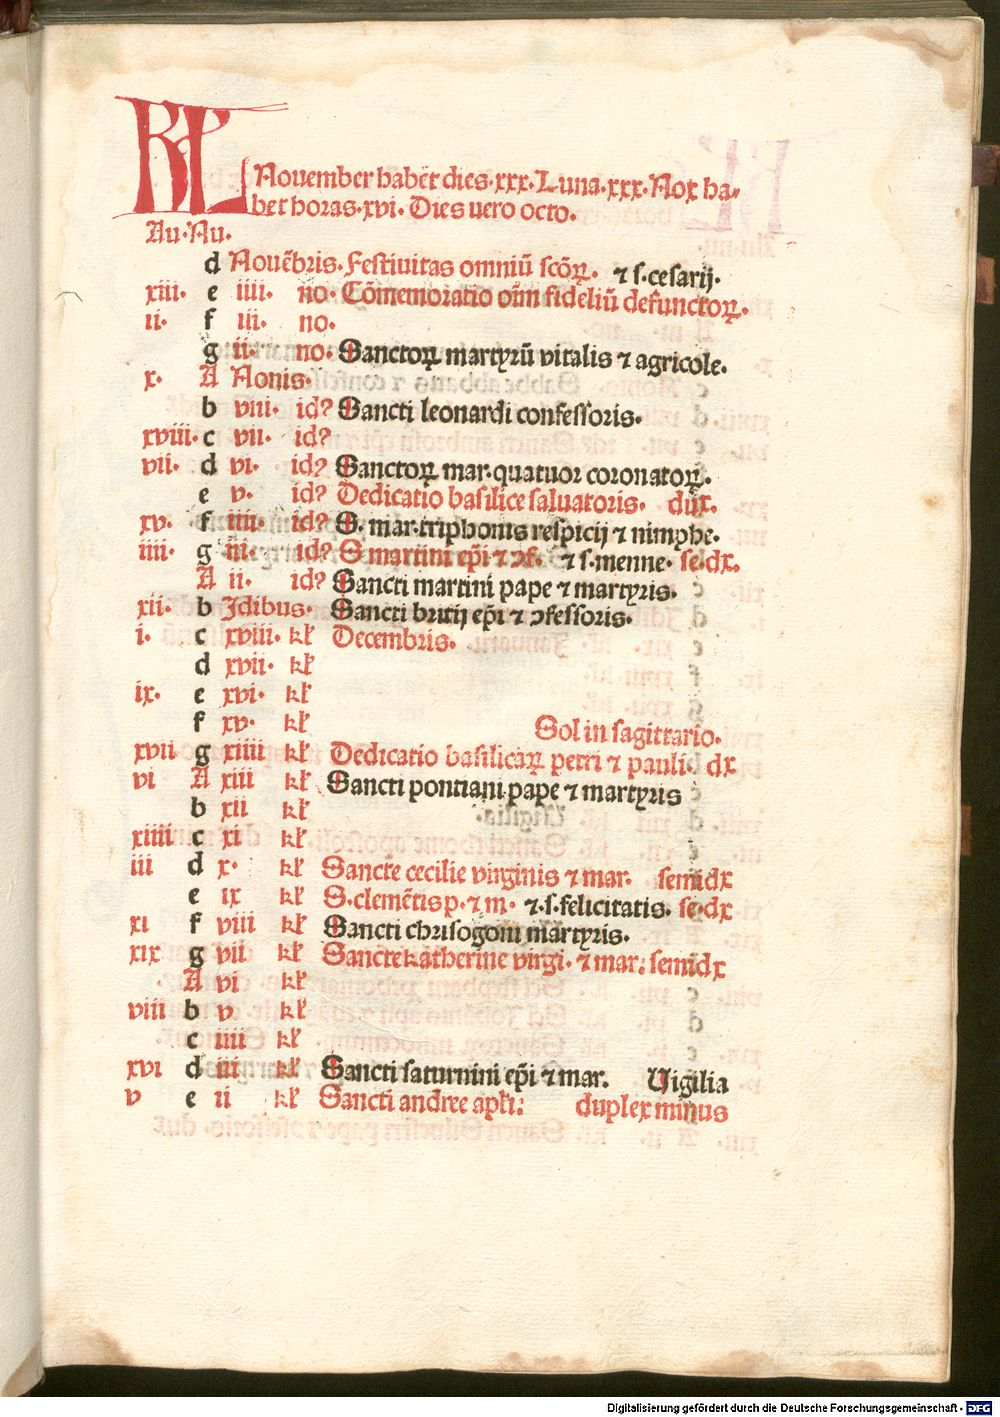 KL November habet dies·xxx·Luna·xxx·Nox ha⸗
bet horas·xvi·Dies uero octo.
Au·Nu.
d Nouēbris·Festiuitas omniū scōꝝ. ⁊ s·cesarij.
xiii· e iiii· no· Cōmemoratio oīm fideliū defunctoꝝ.
ii· f iii· no.
g ii· no· Sanctoꝝ martyrū vitalis ⁊ agricole.
x· A Nonis.
b viii· idꝰ Sancti leonardi confessoris.
xviii· c vii· idꝰ
vii· d vi· idꝰ Sanctoꝝ mar·quatuor coronatoꝝ.
e v· idꝰ Dedicatio basilice saluatoris· dux.
xv· f iiii· idꝰ S· mar·triphonis respicij ⁊ nimphe.
iiii· g iii· idꝰ S martini ep̄i ⁊ ↄf. ⁊ s·menne· se·dx.
A ii· idꝰ Sancti martini pape ⁊ martyris.
xii· b Idibus· Sancti britij ep̄i ⁊ ↄfessoris.
i· c xviii· kł Decembris.
d xvii· kł
ix· e xvi· kł
f xv· kł Sol in sagittario.
xvii g xiiii kł Dedicatio basilicaꝝ petri ⁊ pauli· dx
vi A xiii kł Sancti pontiani pape ⁊ martyris
b xii kł
xiiii c xi kł
iii d x· kł Sancte cecilie virginis ⁊ mar. semidx
e ix kł S·clemētis p·⁊ m· ⁊·s·felicitatis. se·dx
xi f viii kł Sancti chrisogoni martyris.
xix g vii kł Sancte katherine virgi· ⁊ mar: semidx
A vi kł
viii b v kł
c iiii kł
xvi d iii kł Sancti saturnini ep̄i ⁊ mar. Vigilia
v e ii kł Sancti andree apłi: duplex minus
Digitalisierung gefördert durch die Deutsche Forschungsgemeinschaft - DFG